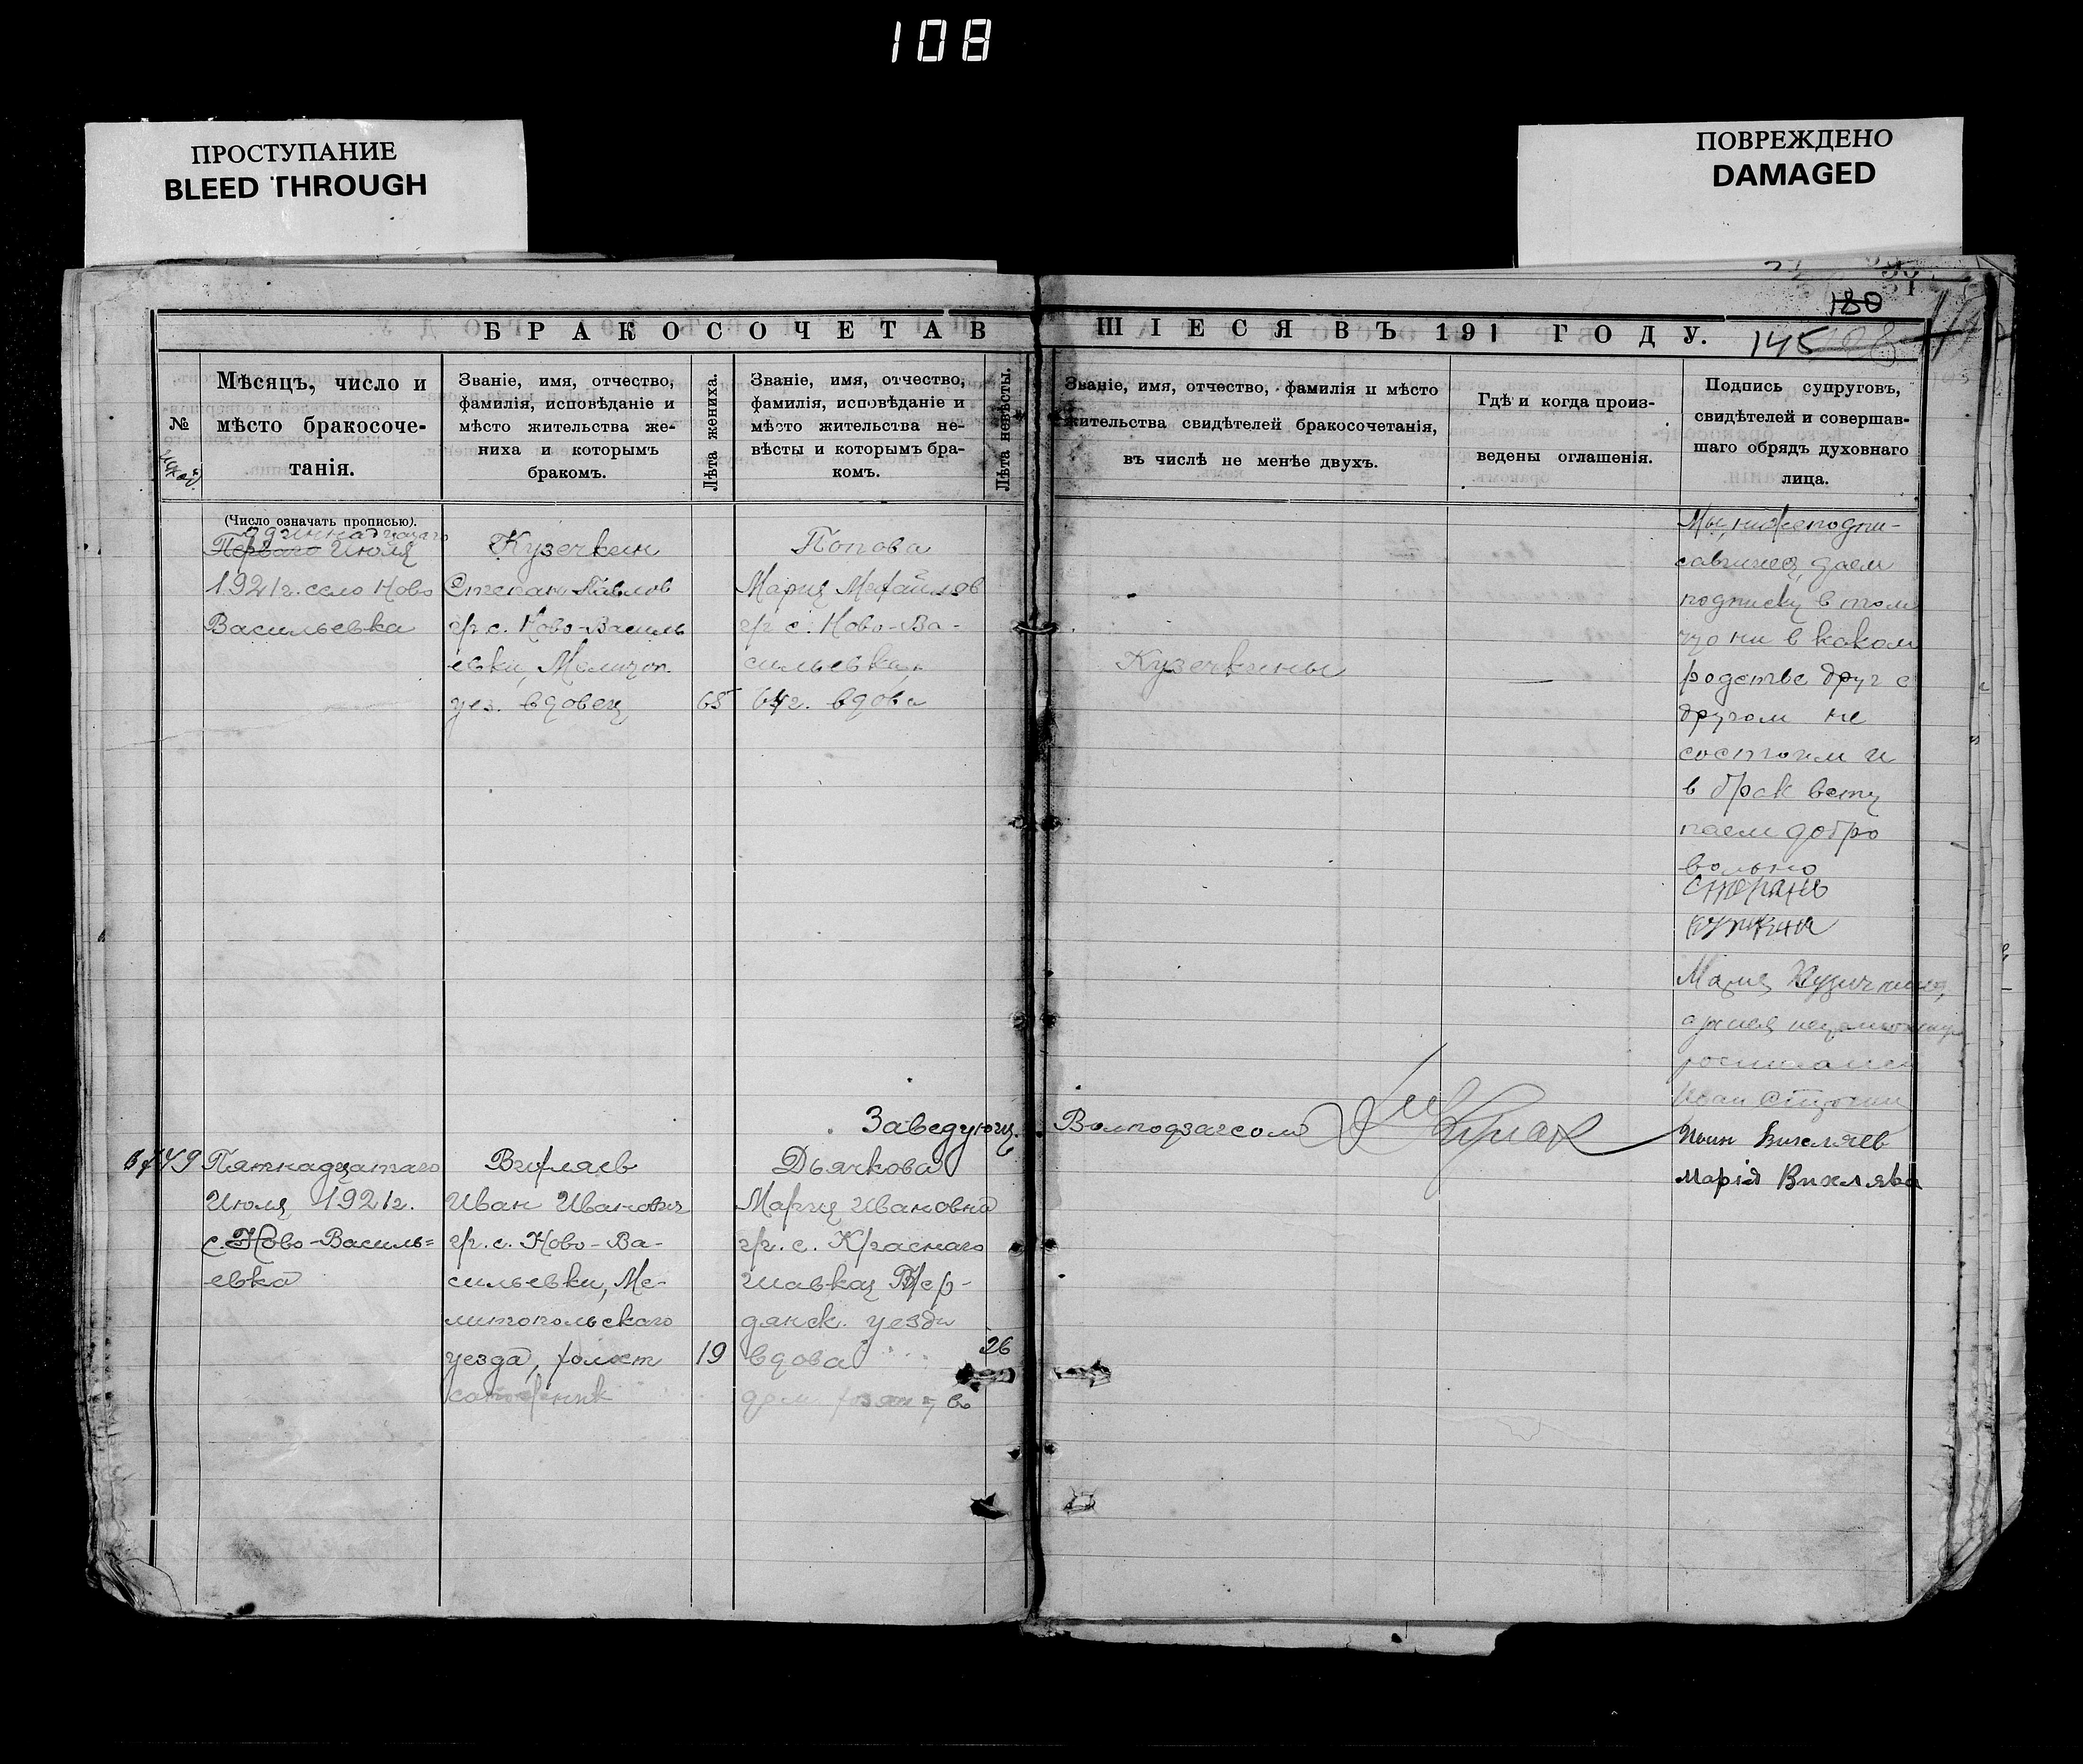 108
ПРОСТУПАНИЕ
BLEED THROUGH
ПОВРЕЖДЕНО
DAMAGED
180
145
БРАКОСОЧЕТАВ
ШІЕСЯ ВЪ 191 ГОДУ.
№
Мѣсяцъ, число и
мѣсто бракосоче-
танія.
Званіе, имя, отчество,
фамилія, исповѣданіе и
мѣсто жительства же-
ниха и которымъ
бракомъ.
Лѣта жениха.
Званіе, имя, отчество,
фамилія, исповѣданіе и
мѣсто жительства не-
вѣсты и которымъ бра-
комъ.
Лѣта невѣсты.
Званіе, имя, отчество, фамилія и мѣсто
жительства свидѣтелей бракосочетанія,
въ числѣ не менѣе двухъ.
Гдѣ и когда произ-
ведены оглашенія.
Подпись супруговъ,
свидѣтелей и совершав-
шаго обрядъ духовнаго
лица.
(Число означать прописью).
Одиннадцатаго
Перваго Июля
1921г. село Ново
Васильевка
Кузечкин
Степан Павлов
гр. с. Ново-Василь
евки, Мелитоп.
уез. вдовец
65
Попова
Мария Михайлов
гр с. Ново-Ва-
сильевка,
64г. вдова
Кузечкины
—
Мы, нижеподпи-
савшиеся, даем
подписку в том
что ни в каком
родстве друг с
другом не
состоим и
в брак всту
паем добро
вольно
Степанъ
Мария Кузичкина,
Иван
Заведующ. Волподзагсом
49
Пятнадцатаго
Июля 1921г.
с. Ново-Василь=
евка
Вихляев
Иван Иванович
гр. с. Ново-Ва-
сильевки, Ме-
литопольскаго
уезда, холост
сапожник
19
Дьячкова
Мария Ивановна
гр. с. Краснаго
Бер-
дянск. уезда
вдова
26
Вихляев
Марія Вихлява